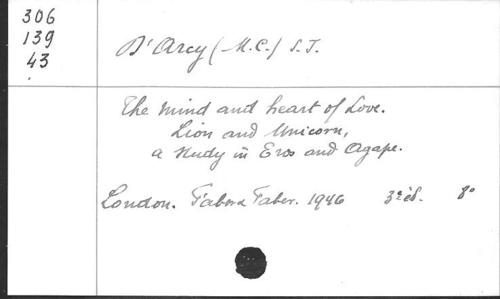 306
139
43
D'Arcy (M.C.) S.J.
The Mind and heart of Love.
Lion and Unicorn,
a study in Eros and Agape.
London. Faber & Faber. 1946 3e éd. 8°